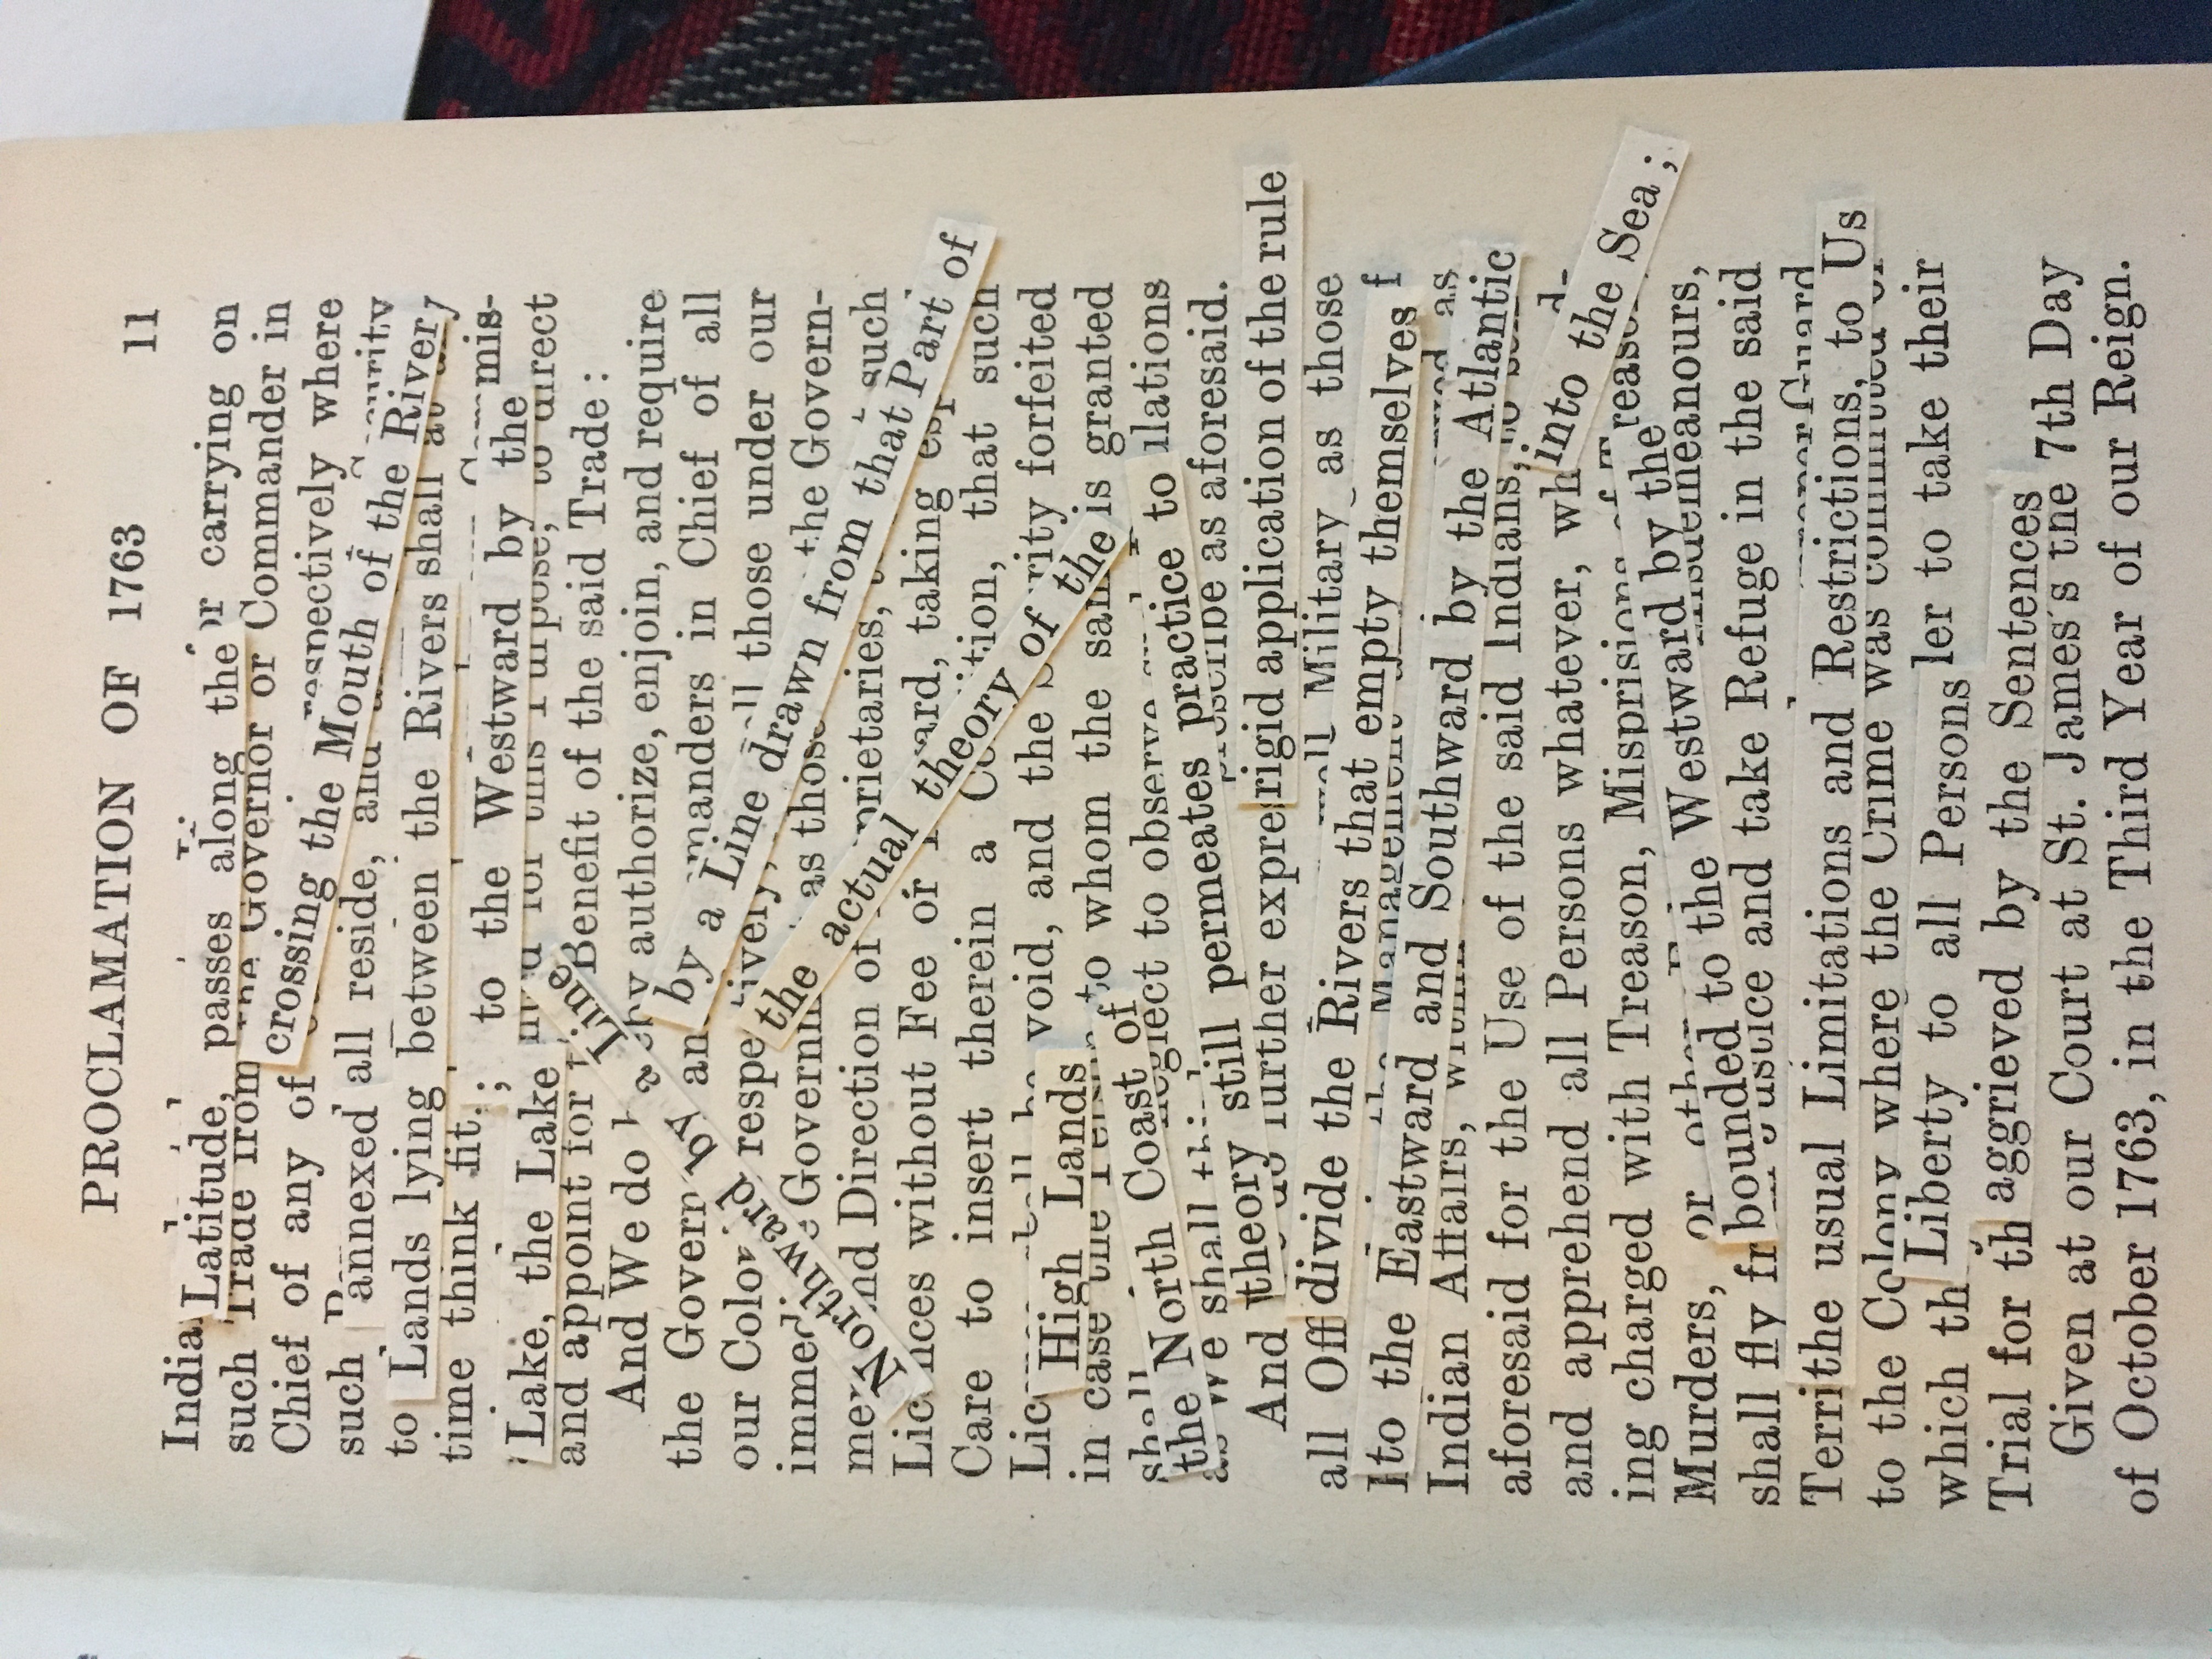 PROCLAMATION OF 1763 11
India Latitude, passes along the or carrying on
such Trade from the Governor or Commander in
Chief of any of respectively where
crossing the Mouth of the River
such annexed all reside, and
to Lands lying between the Rivers shall at
time think fit. mis-
; to the Westward by the
Lake, the Lake to direct
and appoint for Benefit of the said Trade :
Line
And We do authorize, enjoin, and require
the Govern by manders in Chief of all
by a Line drawn from that Part of
our Color respe those under our
Northward
immed Governm as those the Govern-
the actual theory of the
mer nd Direction of prietaries, such
Lic nces without Fee or ard, taking
Care to insert therein a tion, that such
Lic void, and the rity forfeited
High Lands
in case the to whom the same is granted
shall neglect to observe ulations
the North Coast of
as We shall prescribe as aforesaid.
theory still permeates practice to
And further expre rigid application of the rule
all Off divide the Rivers that empty themselves f
Military as those
to the Eastward and Southward by the Atlantic
the Management
Indian Affairs, within
aforesaid for the Use of the said Indians,
into the Sea ;
and apprehend all Persons whatever, wh d-
ing charged with Treason, Misprisions of Treason
Murders, or other Misdemeanours,
bounded to the Westward by the
shall fly fr Justice and take Refuge in the said
Territhe usual Limitations and Restrictions, to Us
to the Colony where the Crime was committed
which th Liberty to all Persons ler to take their
Trial for th aggrieved by the Sentences
Given at our Court at St. James's the 7th Day
of October 1763, in the Third Year of our Reign.